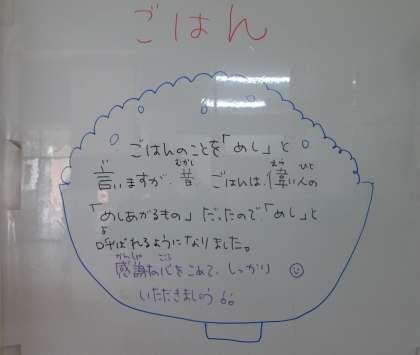 ごはん
ごはんのことを「めし」と
言いますが、昔、ごはんは、偉い人の
「めしあがるもの」だったので、「めし」と
呼ばれるようになりました。
感謝の心をこめて、しっかり
いただきましょう